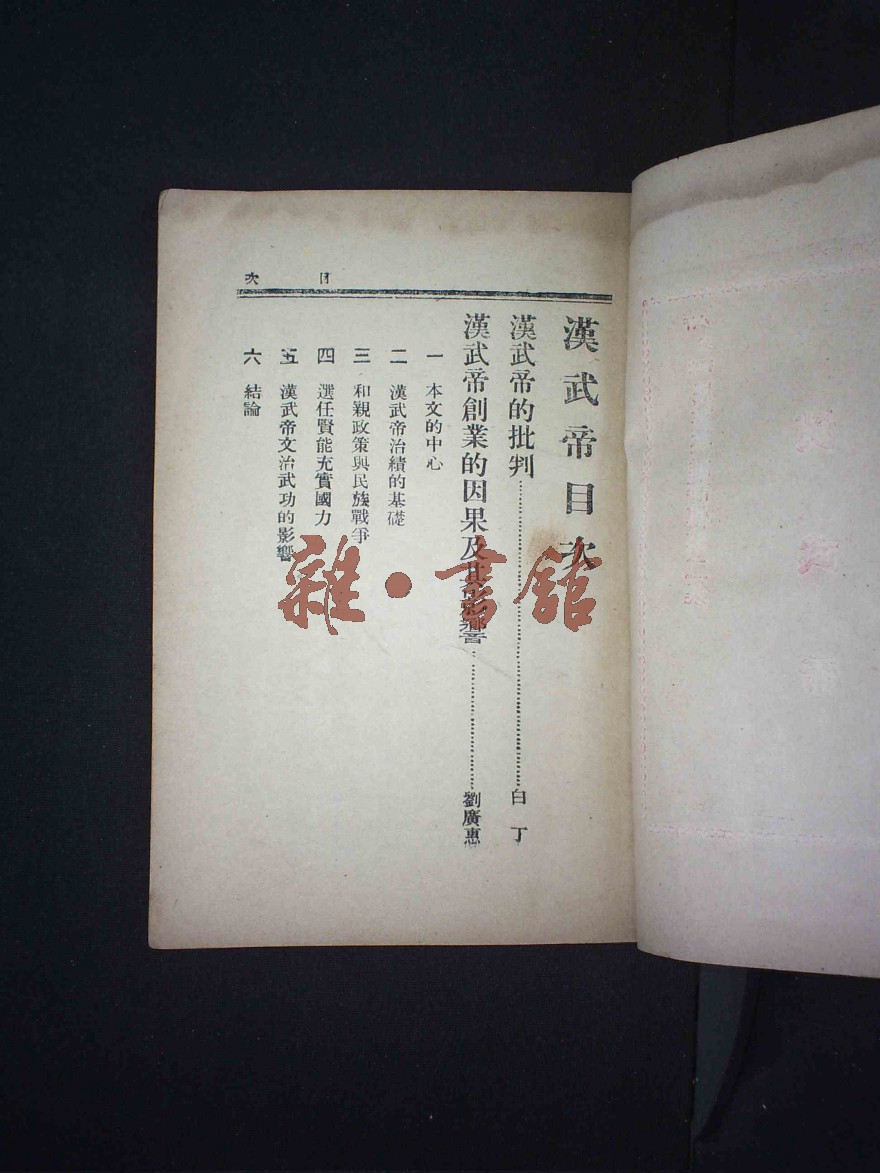 目次
漢武帝目次
漢武帝的批判……白丁
漢武帝創業的因果及其影響……劉廣惠
一 本文的中心
二 漢武帝治績的基礎
三 和親政策與民族戰爭
四 選任賢能充實國力
五 漢武帝文治武功的影響
六 結論
雜·書館